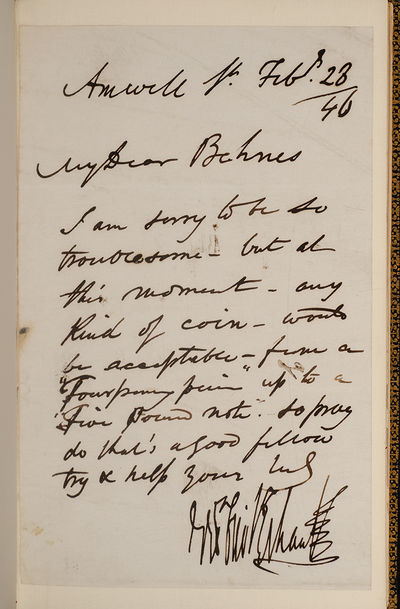 Amwell St. Feby. 23
46
My Dear Behnes
I am sorry to be so
troublesome - but at
this moment - any
Kind of coin - would
be acceptable - from a
"Fourpenny piece" up to a
"Five Pound note". so pray
do that's a good fellow
try & help your